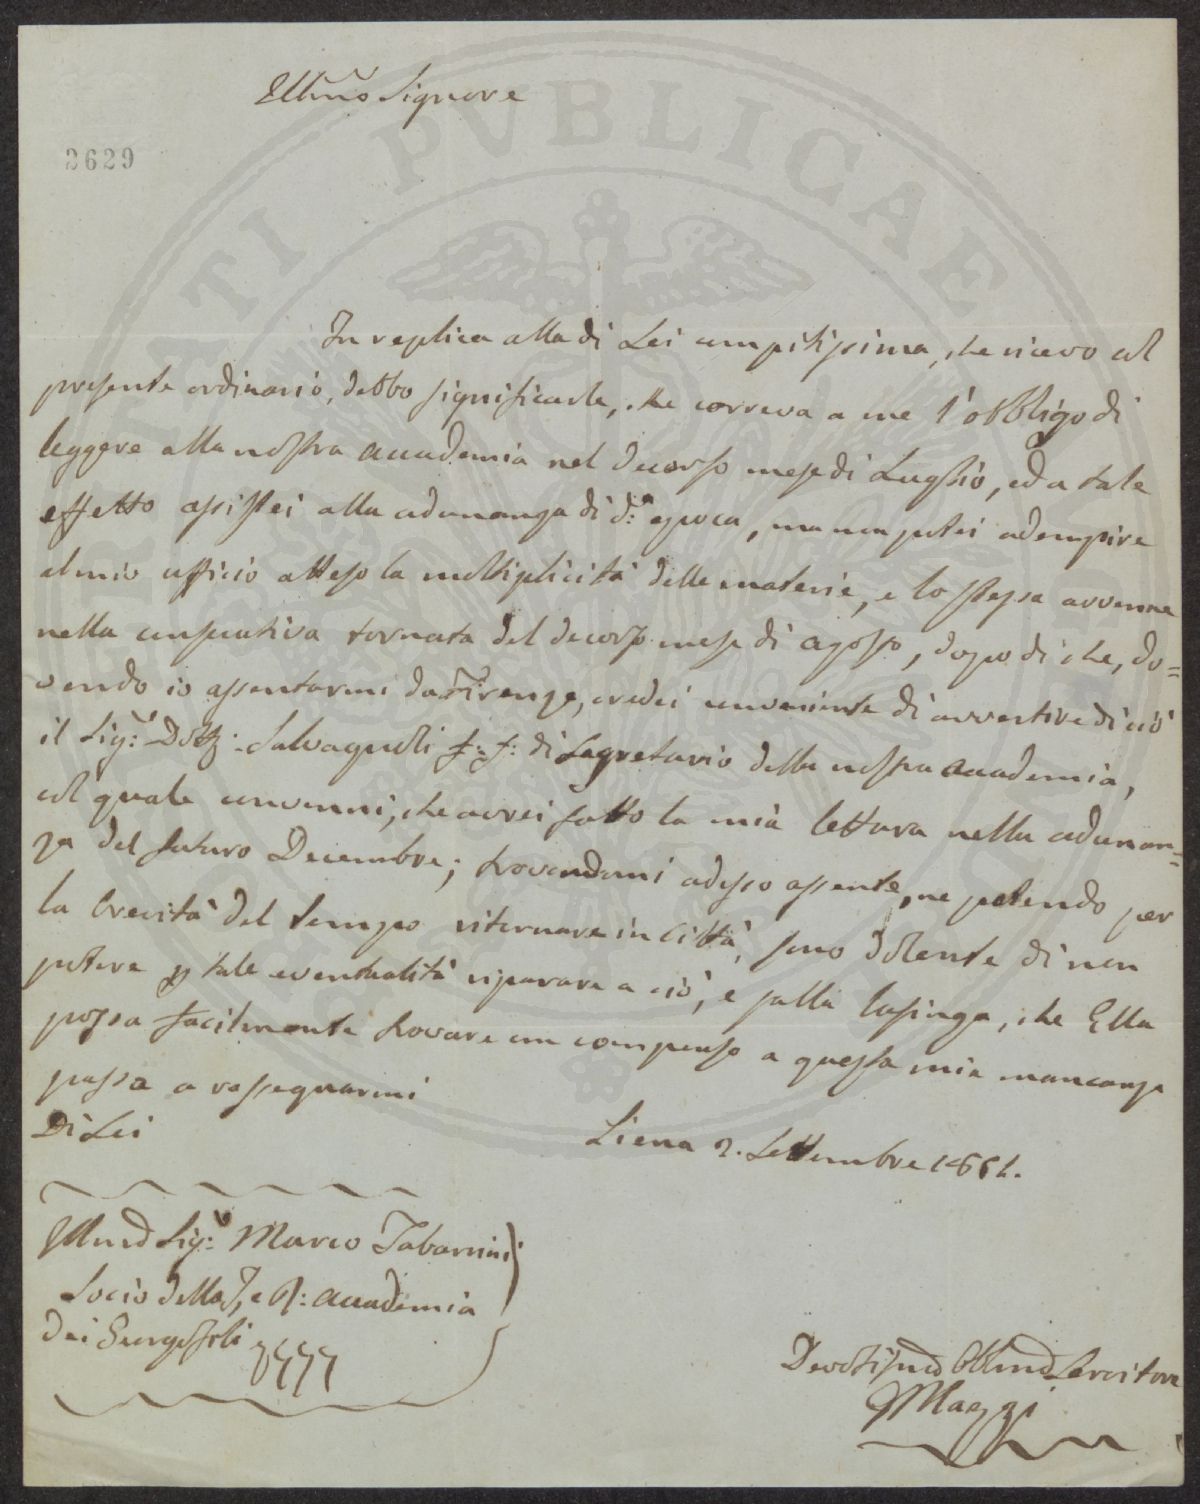 Illmo Signore
2629
PVBLICAE
In replica alla di Lei compitissima, che ricevo col
presente ordinario, debbo significarle, che correva a me l'obbligo di
leggere alla nostra Accademia nel decorso mese di Luglio, ed a tale
effetto assistei alla adunanza di d:a epoca, ma non potei adempire
al mio ufficio atteso la moltiplicità delle materie, e lo stesso avvenne
nella consecutiva tornata del decorso mese di Agosto, dopo di che, do=
vendo io assentarmi da Firenze, credei conveniente di avvertire di ciò
il Sig:r Dott: Salvagnoli f: f: di Segretario della nostra Accademia,
col quale convenni, che avrei fatto la mia lettura nella adunan=
za del futuro Decembre; trovandomi adesso assente, ne potendo per
la brevità del tempo ritornare in Città, sono dolente di non
potere p tale eventualità riparare a ciò, e sulla lusinga, che Ella
possa facilmente trovare un compenso a questa mia mancanza
passo a rassegnarmi
Di Lei
Siena 2. Settembre 1851.
Illmo Sig:r Marco Tabarrini
Socio della I, e R: Accademia
dei Georgofili
Devotissmo Obblmo Servitore
Maggi